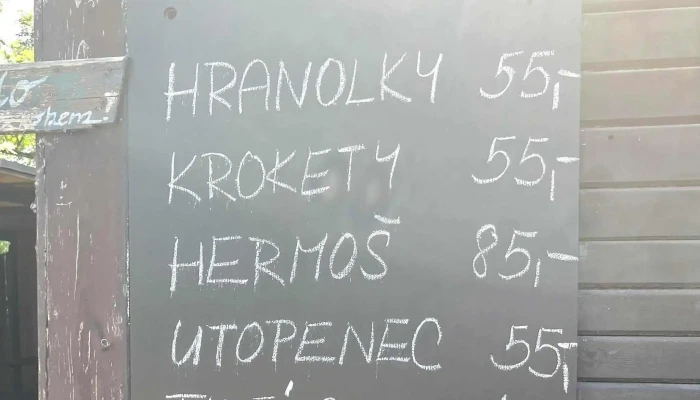 HRANOLKY 55,-
KROKETY 55,-
HERMOŠ 85,-
UTOPENEC 55,-